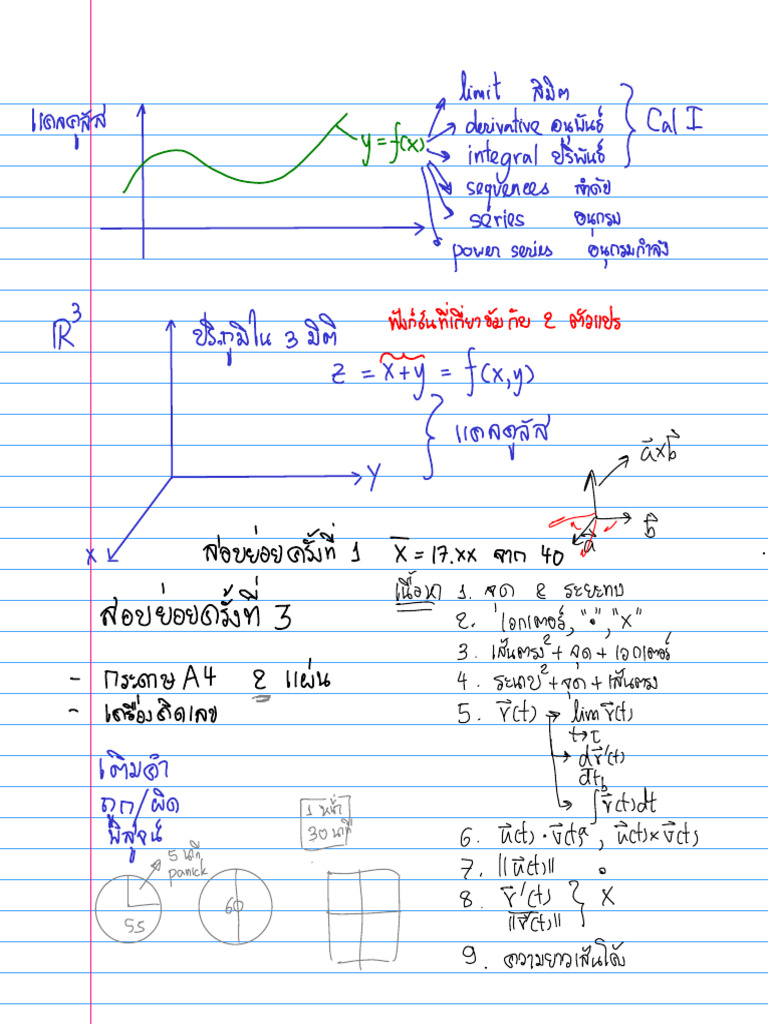 แคลคูลัส
y = f(x)
limit ลิมิต
derivative อนุพันธ์
integral ปริพันธ์
} Cal I
sequences ลำดับ
series อนุกรม
power series อนุกรมกำลัง
R³
ปริภูมิใน 3 มิติ
ฟังก์ชันที่เกี่ยวข้องกับ 2 ตัวแปร
z = x+y = f(x,y)
} แคลคูลัส
Y
X
a⃗×b⃗
b⃗
a⃗
สอบย่อยครั้งที่ 1 X̄ = 17.xx จาก 40
สอบย่อยครั้งที่ 3
- กระดาษ A4 2 แผ่น
- เครื่องคิดเลข
เติมคำ
ถูก/ผิด
พิสูจน์
1 หน้า
30 นาที
5 นาที
panick
55
60
เนื้อหา 1. จุด & ระยะทาง
2. เวกเตอร์, "•", "×"
3. เส้นตรง² + จุด + เวกเตอร์
4. ระนาบ² + จุด + เส้นตรง
5. r⃗(t) → lim r⃗(t)
t→c
→ dr⃗(t)
dt
→ ∫ r⃗(t)dt
b
a
6. u⃗(t) · v⃗(t), u⃗(t) × v⃗(t)
7. ||u⃗(t)||
8. r⃗'(t) } X
||r⃗'(t)||
9. ความยาวเส้นโค้ง